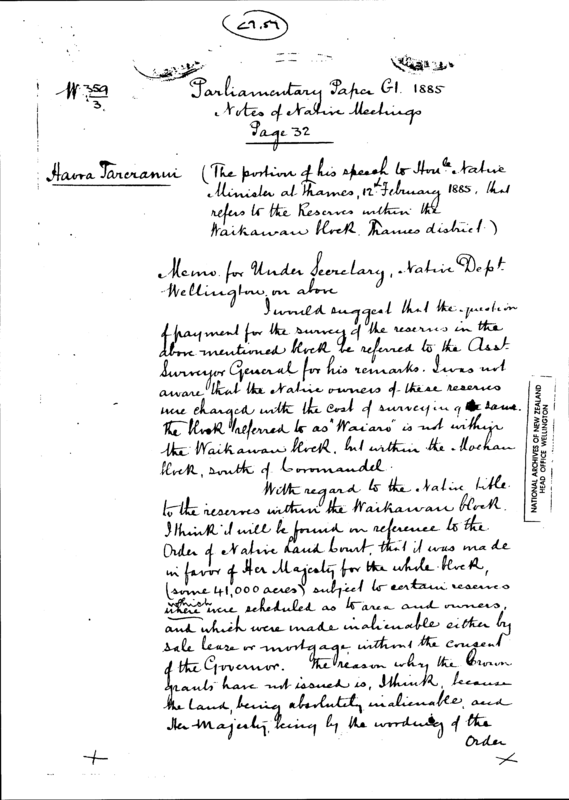 C7.54
W 359/3.
Parliamentary Paper G1. 1885
Notes of Native Meetings
Page 32
Haora Tareranui
(The portion of his speech to Honble. Native
Minister at Thames, 12th February 1885, that
refers to the Reserves within the
Waikawau block, Thames district.)
Memo. for Under Secretary, Native Dept.
Wellington, on above
I would suggest that the question
of payment for the survey of the reserves in the
above mentioned block be referred to the Asst.
Surveyor General for his remarks. I was not
aware that the Native owners of these reserves
were charged with the cost of surveying same.
The block referred to as "Waiaro" is not within
the Waikawau block, but within the Moehau
block, south of Coromandel.
With regard to the Native title
to the reserves within the Waikawau block.
I think it will be found on reference to the
Order of Native Land Court, that it was made
in favor of Her Majesty for the whole block,
(some 41,000 acres) subject to certain reserves
which were scheduled as to area and owners,
and which were made inalienable either by
sale lease or mortgage without the consent
of the Governor. The reason why the Crown
grants have not issued is, I think, because
the land, being absolutely inalienable, and
Her Majesty, being by the wording of the
Order
NATIONAL ARCHIVES OF NEW ZEALAND
HEAD OFFICE WELLINGTON